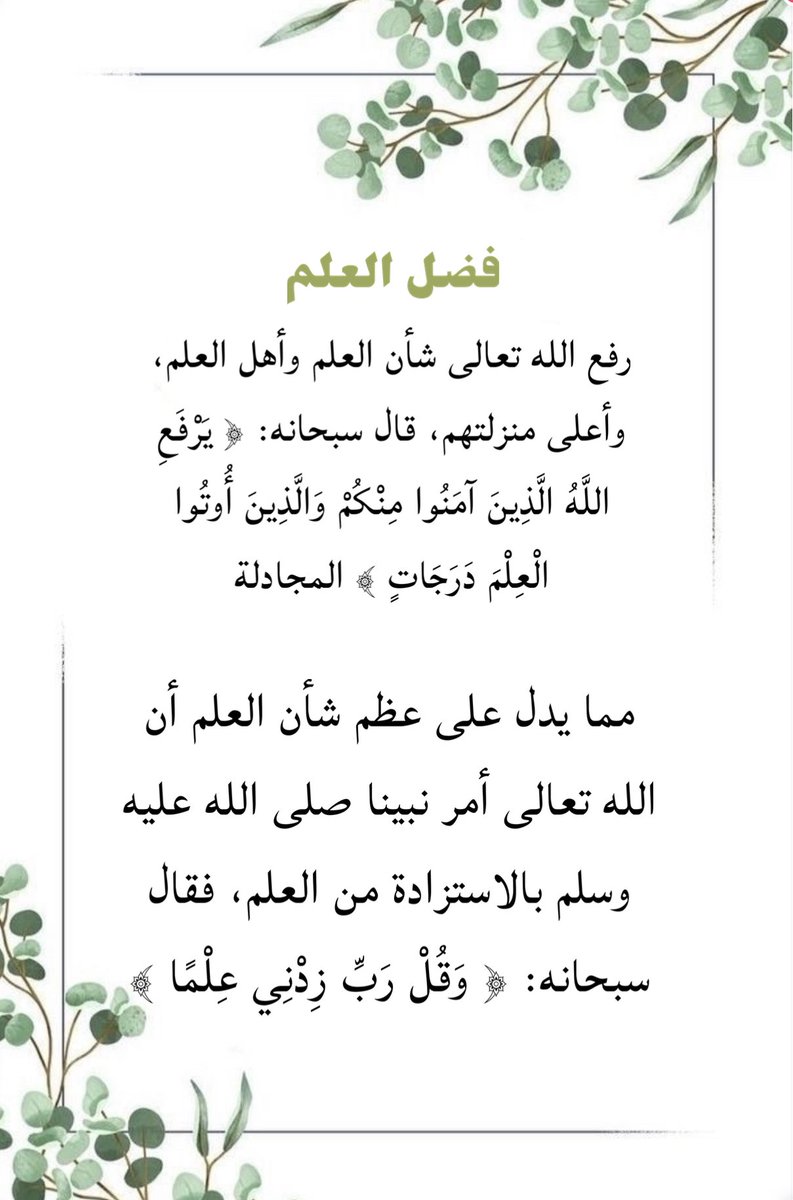 فضل العلم
رفع الله تعالى شأن العلم وأهل العلم،
وأعلى منزلتهم، قال سبحانه: ﴿ يَرْفَعِ
اللَّهُ الَّذِينَ آمَنُوا مِنْكُمْ وَالَّذِينَ أُوتُوا
الْعِلْمَ دَرَجَاتٍ ﴾ المجادلة
مما يدل على عظم شأن العلم أن
الله تعالى أمر نبينا صلى الله عليه
وسلم بالاستزادة من العلم، فقال
سبحانه: ﴿ وَقُلْ رَبِّ زِدْنِي عِلْمًا ﴾